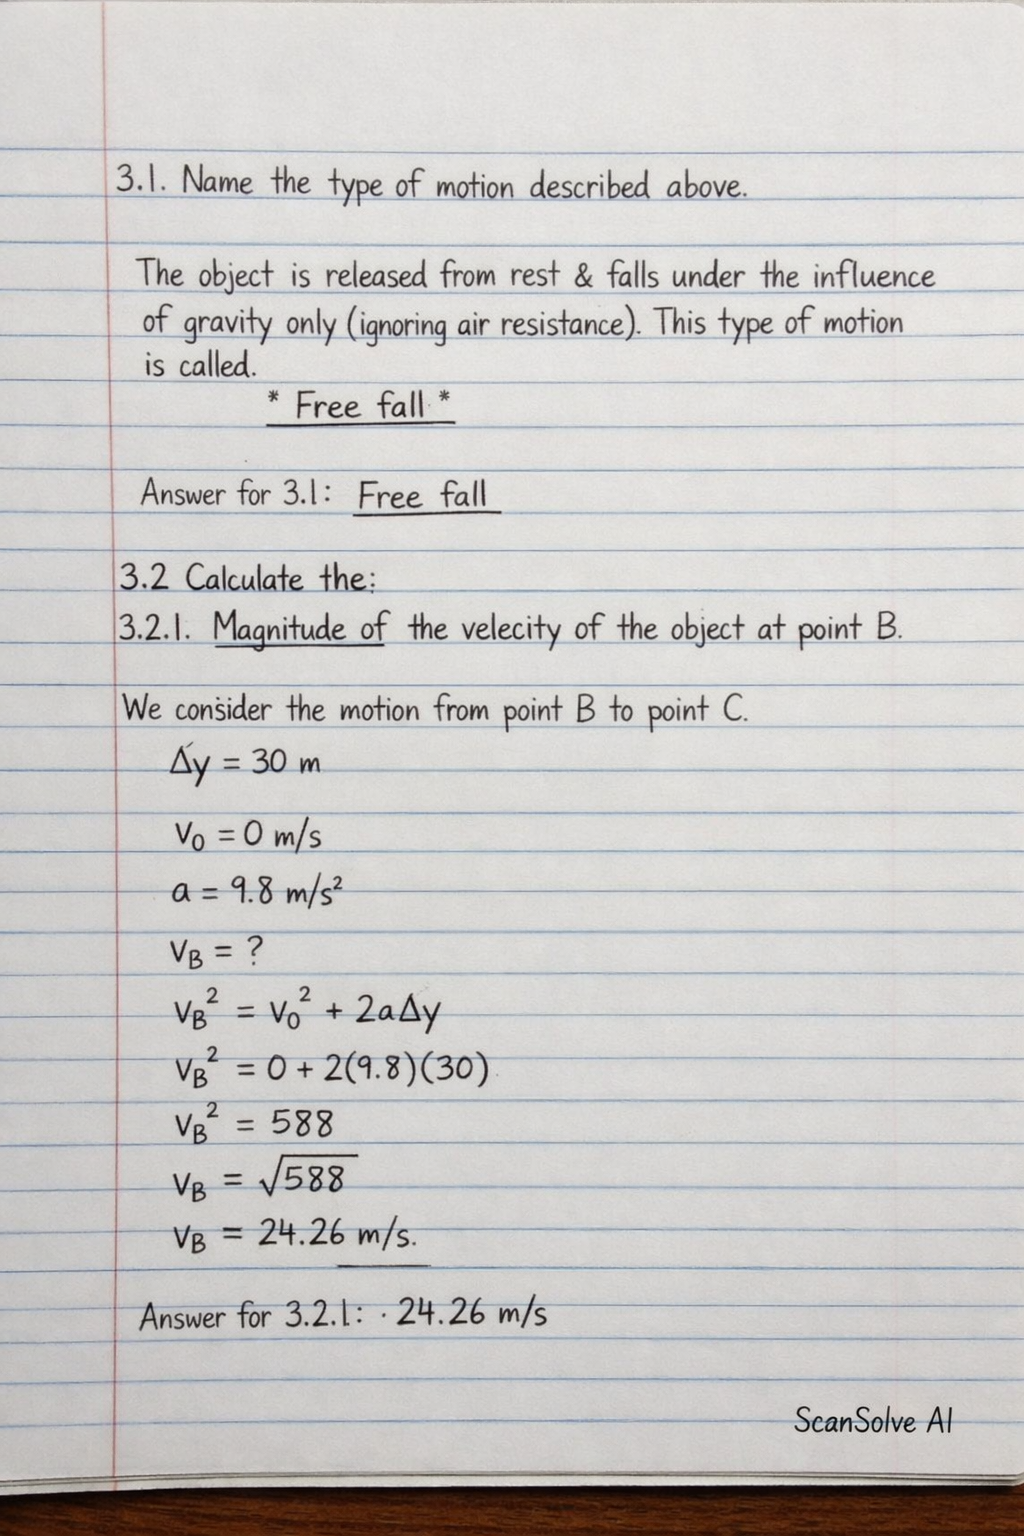 3.1. Name the type of motion described above.
The object is released from rest & falls under the influence
of gravity only (ignoring air resistance). This type of motion
is called.
* Free fall *
Answer for 3.1: Free fall
3.2 Calculate the:
3.2.1. Magnitude of the velecity of the object at point B.
We consider the motion from point B to point C.
Δy = 30 m
v₀ = 0 m/s
a = 9.8 m/s²
v_B = ?
v_B² = v₀² + 2aΔy
v_B² = 0 + 2(9.8)(30)
v_B² = 588
v_B = √588
v_B = 24.26 m/s.
Answer for 3.2.1: · 24.26 m/s
ScanSolve AI